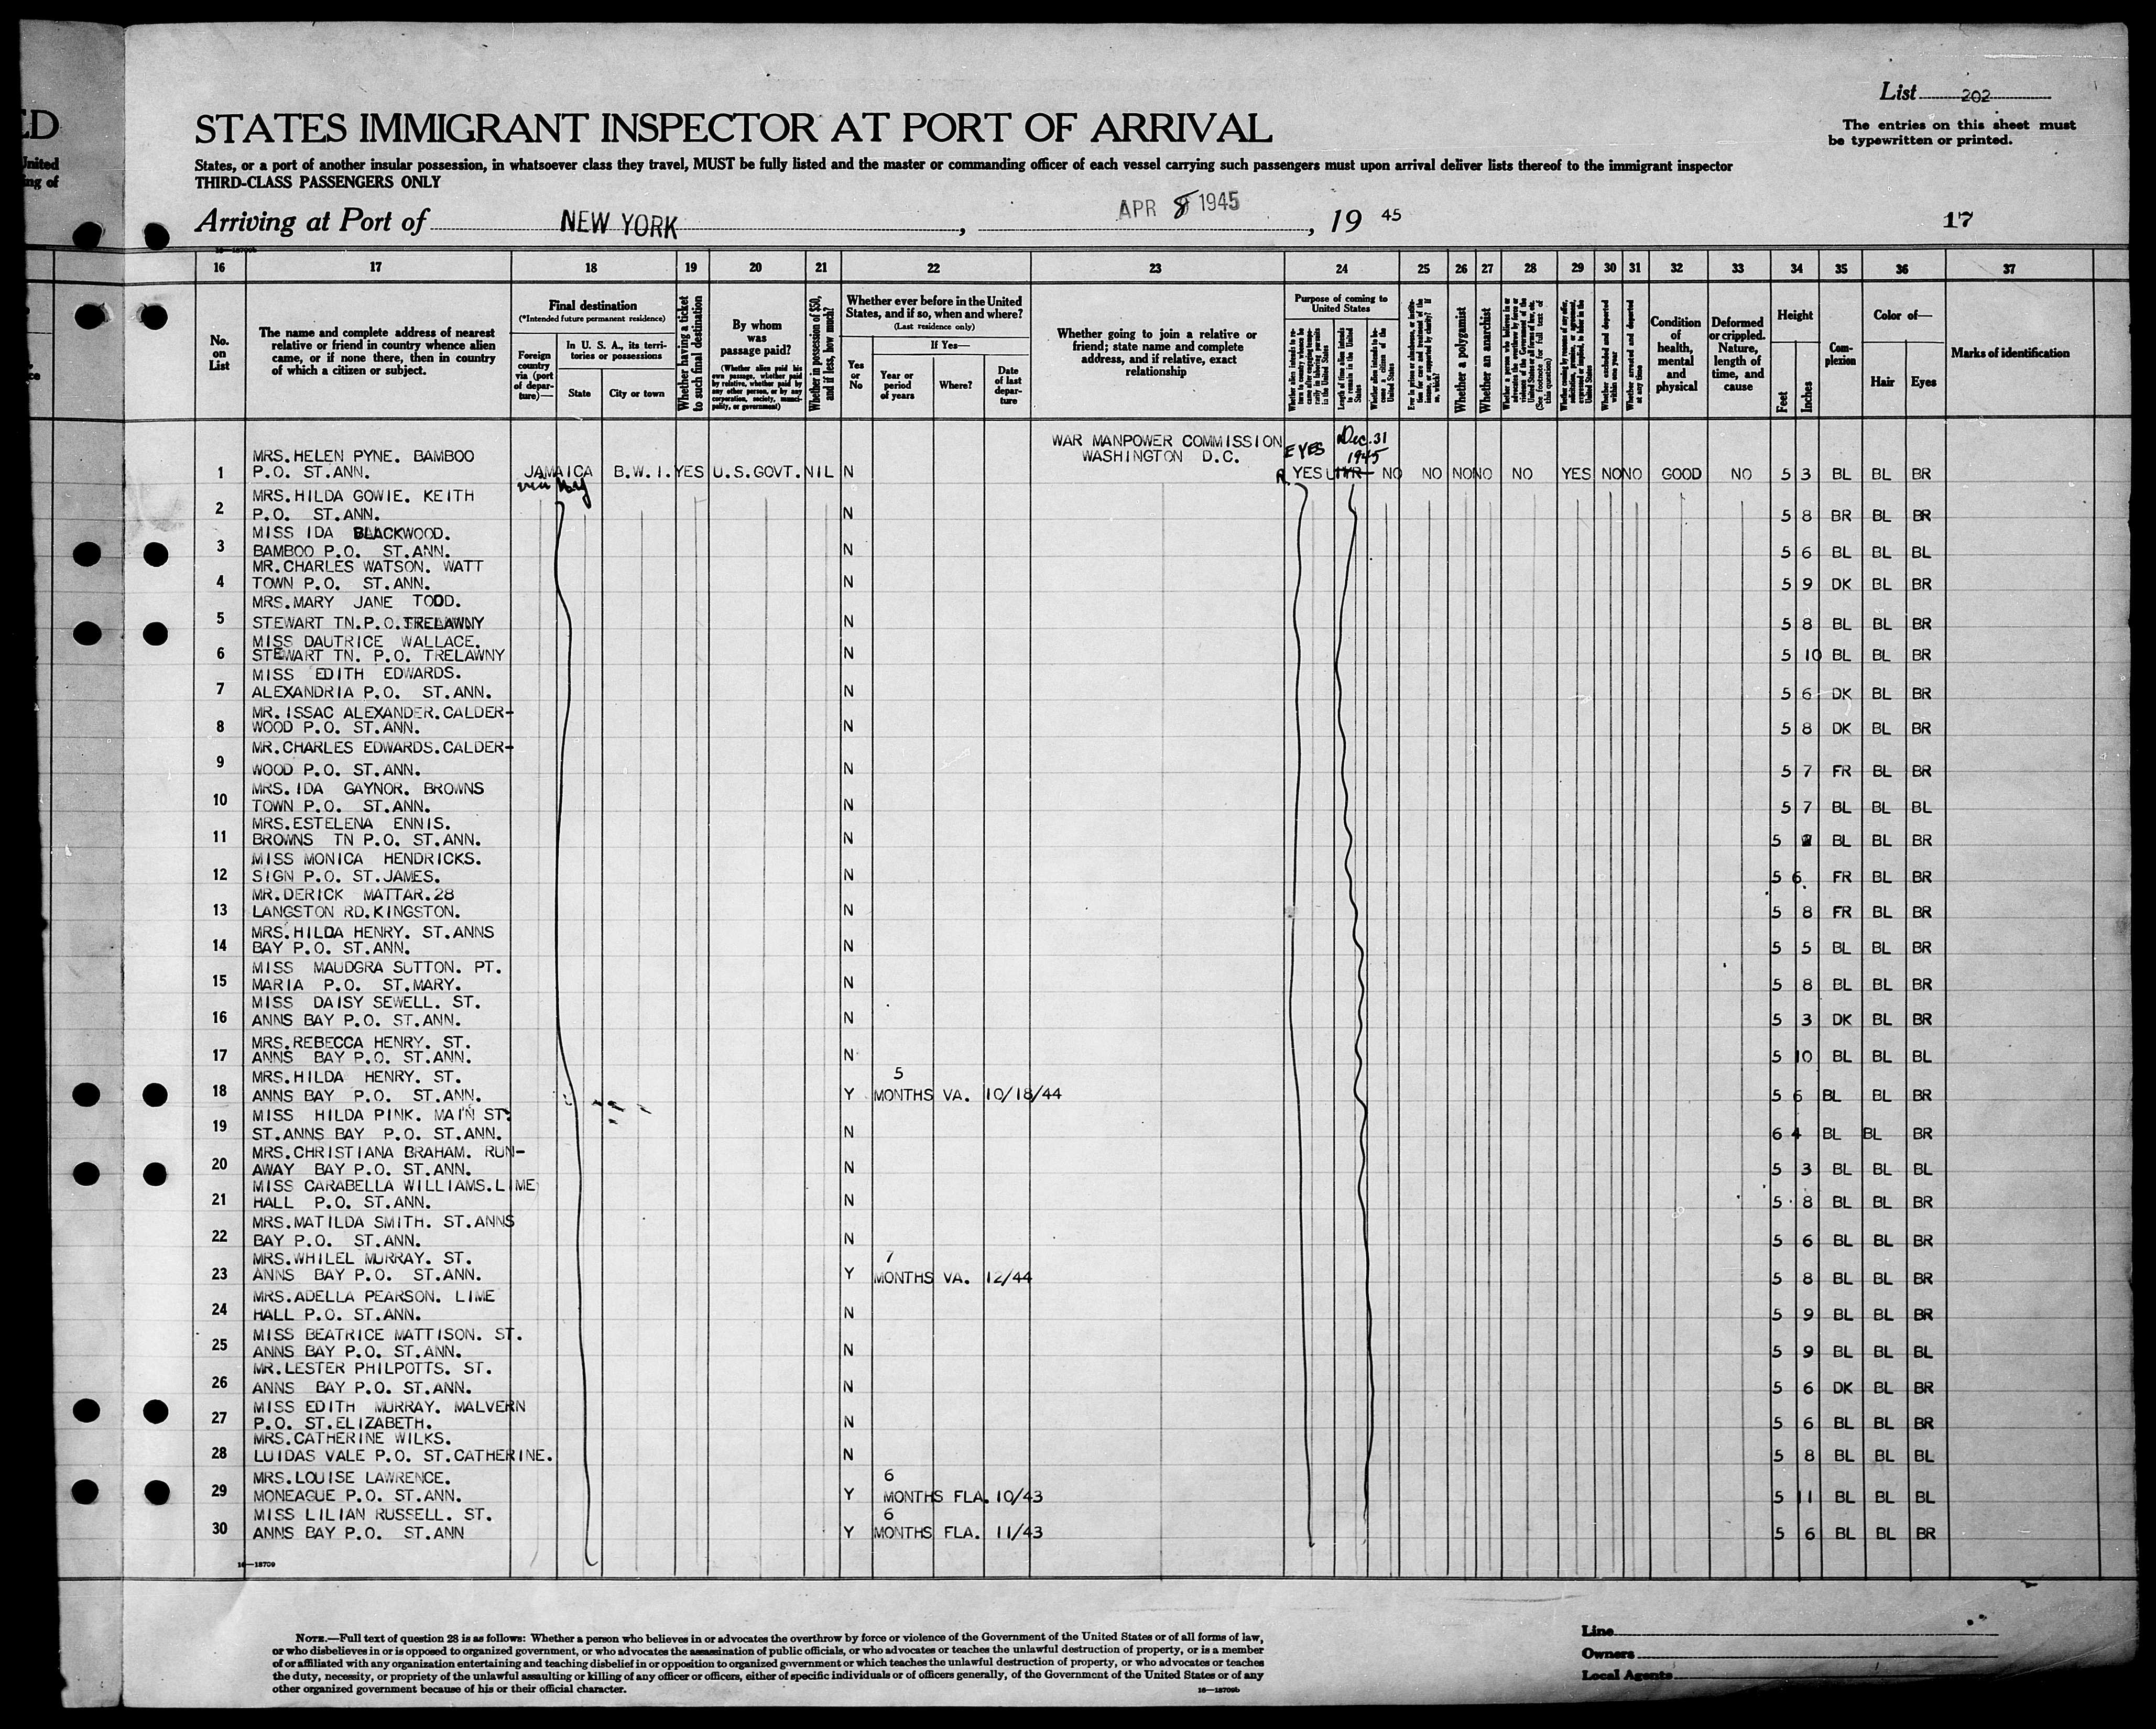 ED
United
ing of
List 202
The entries on this sheet must
be typewritten or printed.
STATES IMMIGRANT INSPECTOR AT PORT OF ARRIVAL
States, or a port of another insular possession, in whatsoever class they travel, MUST be fully listed and the master or commanding officer of each vessel carrying such passengers must upon arrival deliver lists thereof to the immigrant inspector
THIRD-CLASS PASSENGERS ONLY
Arriving at Port of NEW YORK, APR 8 1945, 19 45 17
16 17 18 19 20 21 22 23 24 25 26 27 28 29 30 31 32 33 34 35 36 37
No. on List
The name and complete address of nearest relative or friend in country whence alien came, or if none there, then in country of which a citizen or subject.
Final destination
(*Intended future permanent residence)
Foreign country via (port of departure)—
In U. S. A., its territories or possessions
State
City or town
Whether having a ticket to such final destination
By whom was passage paid?
(Whether alien paid his own passage, whether paid by relative, whether paid by any other person, or by any corporation, society, municipality, or government)
Whether in possession of $50, and if less, how much?
Whether ever before in the United States, and if so, when and where?
(Last residence only)
Yes or No
If Yes—
Year or period of years
Where?
Date of last departure
Whether going to join a relative or friend; state name and complete address, and if relative, exact relationship
Purpose of coming to United States
Length of time alien intends to remain in the United States
Whether alien intends to become a citizen of the United States
Whether a polygamist
Whether an anarchist
Whether excluded and deported within one year
Whether arrested and deported at any time
Condition of health, mental and physical
Deformed or crippled. Nature, length of time, and cause
Height
Feet
Inches
Complexion
Color of—
Hair
Eyes
Marks of identification
WAR MANPOWER COMMISSION
WASHINGTON D.C.
YES Dec. 31 1945
MRS.HELEN PYNE. BAMBOO
1 P.O. ST.ANN. JAMAICA B.W.I. YES U.S.GOVT. NIL N YES NO NO NO NO NO YES NO NO GOOD NO 5 3 BL BL BR
via
MRS.HILDA GOWIE. KEITH
2 P.O. ST.ANN. N 5 8 BR BL BR
MISS IDA BLACKWOOD.
3 BAMBOO P.O. ST.ANN. N 5 6 BL BL BL
MR.CHARLES WATSON. WATT
4 TOWN P.O. ST.ANN. N 5 9 DK BL BR
MRS.MARY JANE TODD.
5 STEWART TN.P.O.TRELAWNY N 5 8 BL BL BR
MISS DAUTRICE WALLACE.
6 STEWART TN. P.O. TRELAWNY N 5 10 BL BL BR
MISS EDITH EDWARDS.
7 ALEXANDRIA P.O. ST.ANN. N 5 6 DK BL BR
MR.ISSAC ALEXANDER.CALDER-
8 WOOD P.O. ST.ANN. N 5 8 DK BL BR
MR.CHARLES EDWARDS.CALDER-
9 WOOD P.O. ST.ANN. N 5 7 FR BL BR
MRS.IDA GAYNOR. BROWNS
10 TOWN P.O. ST.ANN. N 5 7 BL BL BL
MRS.ESTELENA ENNIS.
11 BROWNS TN P.O. ST.ANN. N 5 BL BL BR
MISS MONICA HENDRICKS.
12 SIGN P.O. ST.JAMES. N 5 6 FR BL BR
MR.DERICK MATTAR.28
13 LANGSTON RD.KINGSTON. N 5 8 FR BL BR
MRS.HILDA HENRY. ST.ANNS
14 BAY P.O. ST.ANN. N 5 5 BL BL BR
MISS MAUDGRA SUTTON. PT.
15 MARIA P.O. ST.MARY. N 5 8 BL BL BR
MISS DAISY SEWELL. ST.
16 ANNS BAY P.O. ST.ANN. N 5 3 DK BL BR
MRS.REBECCA HENRY. ST.
17 ANNS BAY P.O. ST.ANN. N 5 10 BL BL BL
MRS.HILDA HENRY. ST. 5
18 ANNS BAY P.O. ST.ANN. Y MONTHS VA. 10/18/44 5 6 BL BL BR
MISS HILDA PINK. MAIN ST.
19 ST.ANNS BAY P.O. ST.ANN. N 6 4 BL BL BR
MRS.CHRISTIANA BRAHAM. RUN-
20 AWAY BAY P.O. ST.ANN. N 5 3 BL BL BL
MISS CARABELLA WILLIAMS.LIME
21 HALL P.O. ST.ANN. N 5 8 BL BL BR
MRS.MATILDA SMITH. ST.ANNS
22 BAY P.O. ST.ANN. N 5 6 BL BL BR
MRS.WHILEL MURRAY. ST. 7
23 ANNS BAY P.O. ST.ANN. Y MONTHS VA. 12/44 5 8 BL BL BR
MRS.ADELLA PEARSON. LIME
24 HALL P.O. ST.ANN. N 5 9 BL BL BR
MISS BEATRICE MATTISON. ST.
25 ANNS BAY P.O. ST.ANN. N 5 9 BL BL BL
MR.LESTER PHILPOTTS. ST.
26 ANNS BAY P.O. ST.ANN. N 5 6 DK BL BR
MISS EDITH MURRAY. MALVERN
27 P.O. ST.ELIZABETH. N 5 6 BL BL BR
MRS.CATHERINE WILKS.
28 LUIDAS VALE P.O. ST.CATHERINE. N 5 8 BL BL BL
MRS.LOUISE LAWRENCE. 6
29 MONEAGUE P.O. ST.ANN. Y MONTHS FLA. 10/43 5 11 BL BL BL
MISS LILIAN RUSSELL. ST. 6
30 ANNS BAY P.O. ST.ANN Y MONTHS FLA. 11/43 5 6 BL BL BR
16—18709
NOTE.—Full text of question 28 is as follows: Whether a person who believes in or advocates the overthrow by force or violence of the Government of the United States or of all forms of law,
or who disbelieves in or is opposed to organized government, or who advocates the assassination of public officials, or who advocates or teaches the unlawful destruction of property, or is a member
of or affiliated with any organization entertaining and teaching disbelief in or opposition to organized government or which teaches the unlawful destruction of property, or who advocates or teaches
the duty, necessity, or propriety of the unlawful assaulting or killing of any officer or officers, either of specific individuals or of officers generally, of the Government of the United States or of any
other organized government because of his or their official character.
16—18709b
Line
Owners
Local Agents